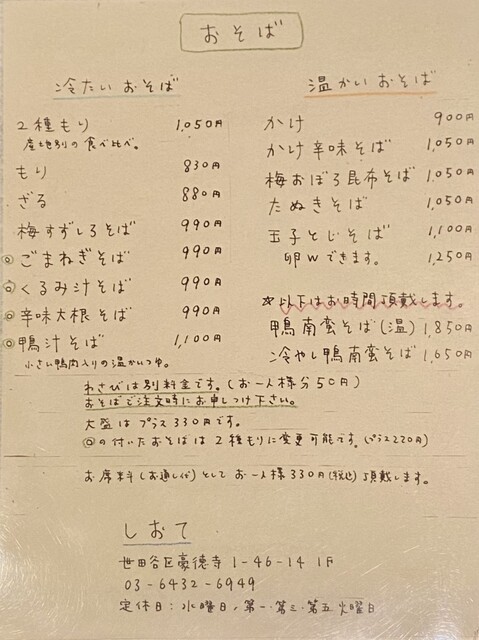 おそば
冷たいおそば
2種もり 1,050円
産地別の食べ比べ。
もり 830円
ざる 880円
梅すずしろそば 990円
◎ごまねぎそば 990円
◎くるみ汁そば 990円
◎辛味大根そば 990円
◎鴨汁そば 1,100円
小さい鴨肉入りの温かいつゆ。
温かいおそば
かけ 900円
かけ辛味そば 1,050円
梅おぼろ昆布そば 1,050円
たぬきそば 1,050円
玉子とじそば 1,100円
卵Wできます。 1,250円
※以下はお時間頂戴します。
鴨南蛮そば(温) 1,850円
冷やし鴨南蛮そば 1,650円
わさびは別料金です。(お一人様分50円)
おそばご注文時にお申しつけ下さい。
大盛はプラス330円です。
◎の付いたおそばは2種もりに変更可能です。(プラス220円)
お席料(お通し代)としてお一人様330円(税込)頂戴します。
しおて
世田谷区豪徳寺1-46-14 1F
03-6432-6949
定休日:水曜日,第一・第三・第五火曜日